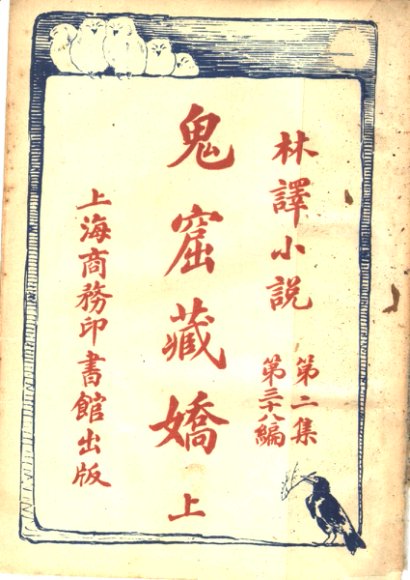 林譯小説
第二集
第三十八編
鬼窟藏嬌
上
上海商務印書館出版